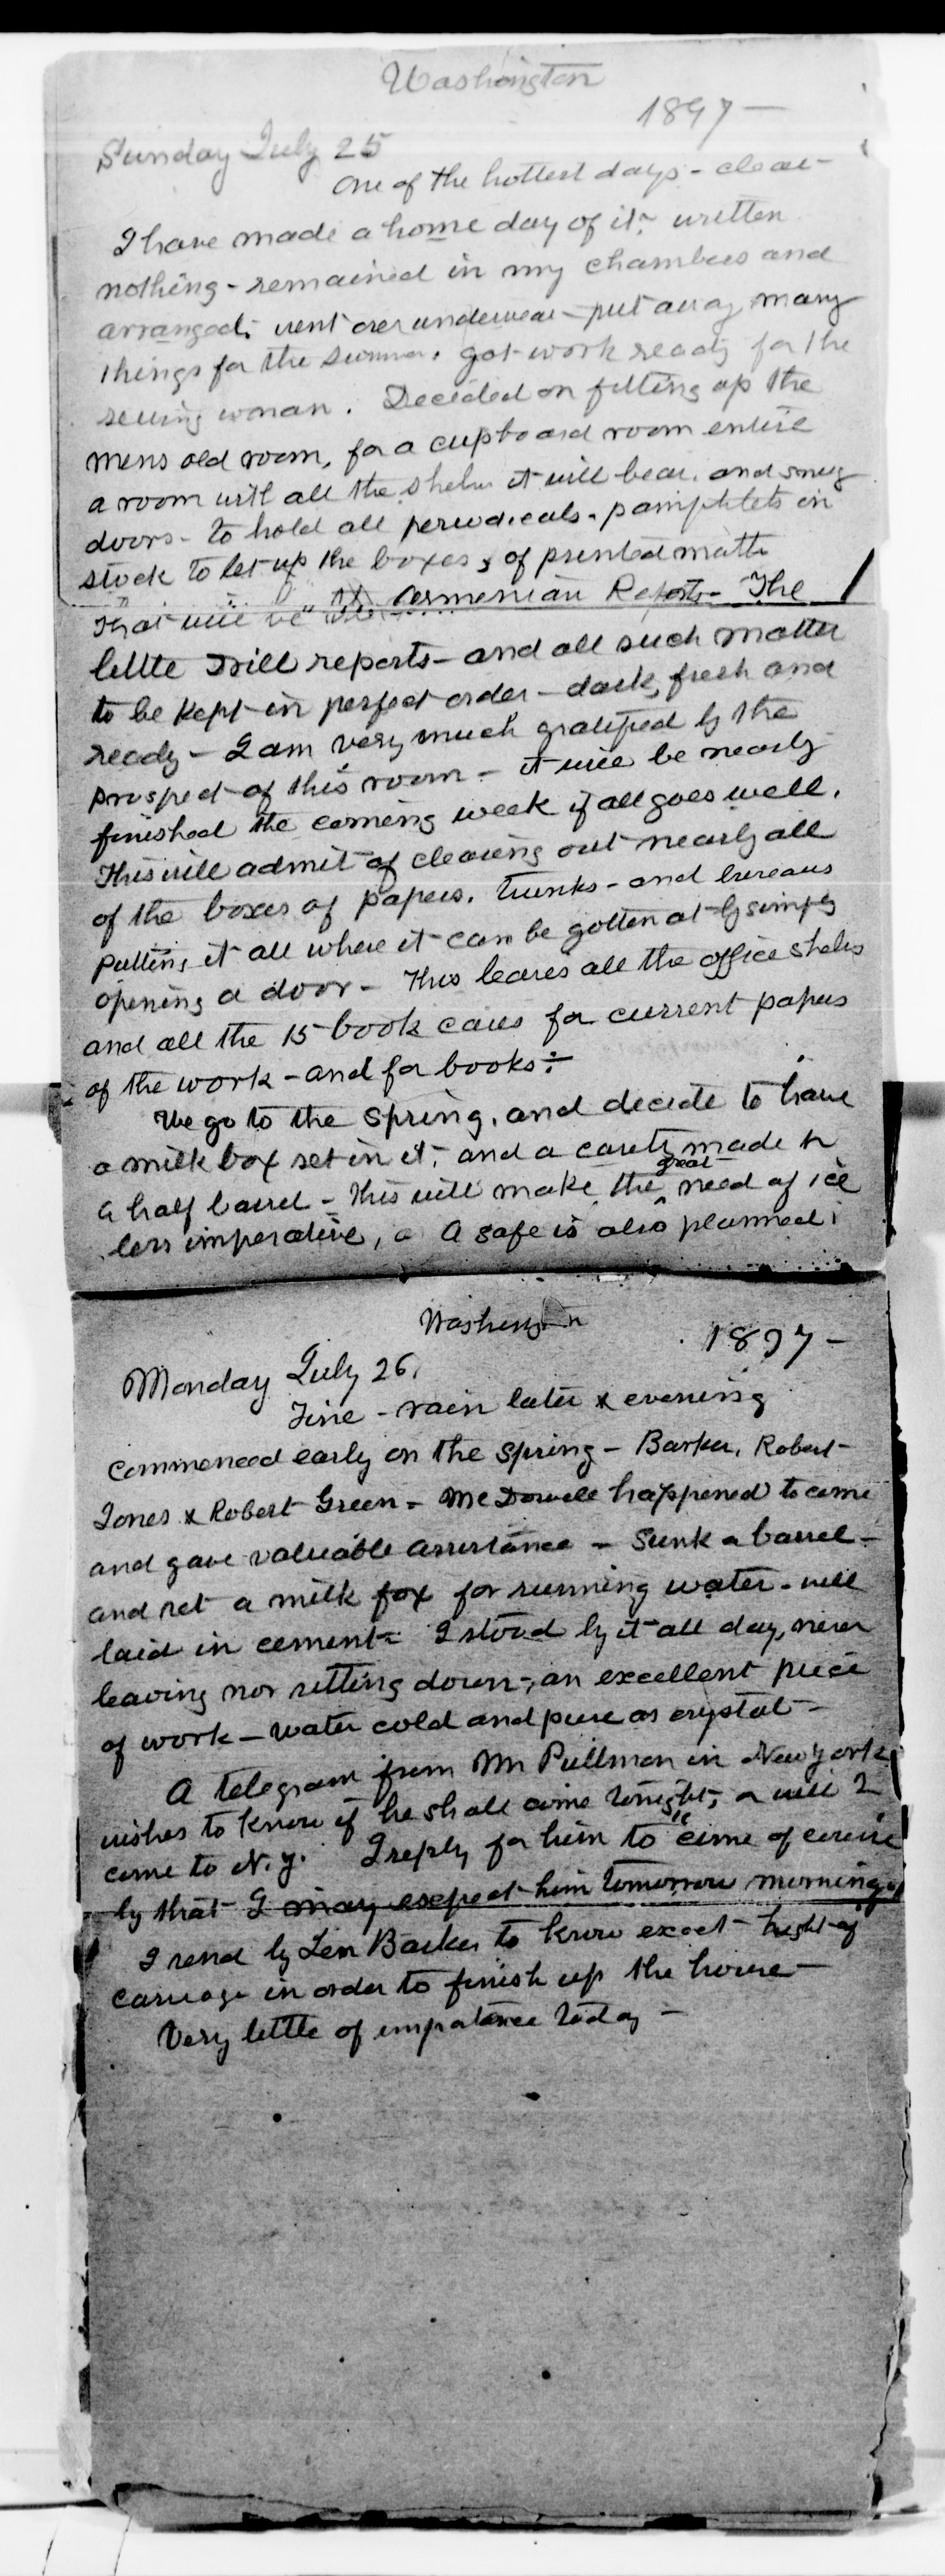 Washington
1897 -
Sunday July 25
One of the hottest days - clear -
I have made a home day of it - written
nothing - remained in my chambers and
arranged. went over underwear - put away many
things for the summer. got work ready for the
sewing woman. Decided on fitting up the
mens old room, for a cupboard room entire
a room with all the shelves it will bear. and snug
doors - to hold all periodicals - pamphlets in
stock to let up the boxes, of printed matter
that will be Armenian Reports - The
little Drill reports - and all such matter
to be kept in perfect order - dark, fresh and
ready - I am very much gratified by the
prospect of this room - it will be nearly
finished the coming week if all goes well.
This will admit of clearing out nearly all
of the boxes of papers. trunks - and bureaus
putting it all where it can be gotten at by simply
opening a door - This leaves all the office shelves
and all the 15 book cases for current papers
of the work - and for books -
We go to the spring, and decide to have
a milk box set in it, and a made in
a half barrel - This will make the great need of ice
less imperative, a A safe is also planned.
Washington
1897 -
Monday July 26.
Fine - rain later & evening
Commenced early on the spring - Barker, Robert
Jones & Robert Green - McDowell happened to come
and gave valuable assistance - Sunk a barrel -
and set a milk fox for running water - well
laid in cement - I stood by it all day, never
leaving nor sitting down -, an excellent piece
of work - water cold and pure as crystal -
A telegram from Mr Pullman in New York
wishes to know if he shall come tonight, or will I
come to N.Y. I reply for him to "come of course"
by that I may expect him tomorrow morning.
I send by Len Barker to know exact hight of
carriage in order to finish up the house -
Very little of impotance today -